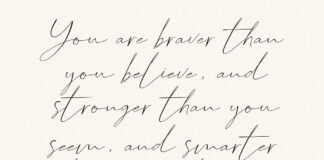 You are braver than
you believe, and
stronger than you
seem, and smarter